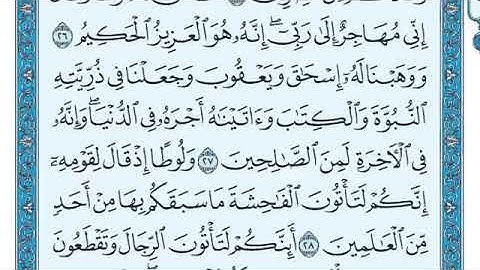 إِنِّي مُهَاجِرٌ إِلَىٰ رَبِّيٓ ۖ إِنَّهُۥ هُوَ ٱلْعَزِيزُ ٱلْحَكِيمُ ٢٦
وَوَهَبْنَا لَهُۥٓ إِسْحَٰقَ وَيَعْقُوبَ وَجَعَلْنَا فِي ذُرِّيَّتِهِ
ٱلنُّبُوَّةَ وَٱلْكِتَٰبَ وَءَاتَيْنَٰهُ أَجْرَهُۥ فِي ٱلدُّنْيَا ۖ وَإِنَّهُۥ
فِي ٱلْءَاخِرَةِ لَمِنَ ٱلصَّٰلِحِينَ ٢٧ وَلُوطًا إِذْ قَالَ لِقَوْمِهِۦٓ
إِنَّكُمْ لَتَأْتُونَ ٱلْفَٰحِشَةَ مَا سَبَقَكُم بِهَا مِنْ أَحَدٍ
مِّنَ ٱلْعَٰلَمِينَ ٢٨ أَئِنَّكُمْ لَتَأْتُونَ ٱلرِّجَالَ وَتَقْطَعُونَ